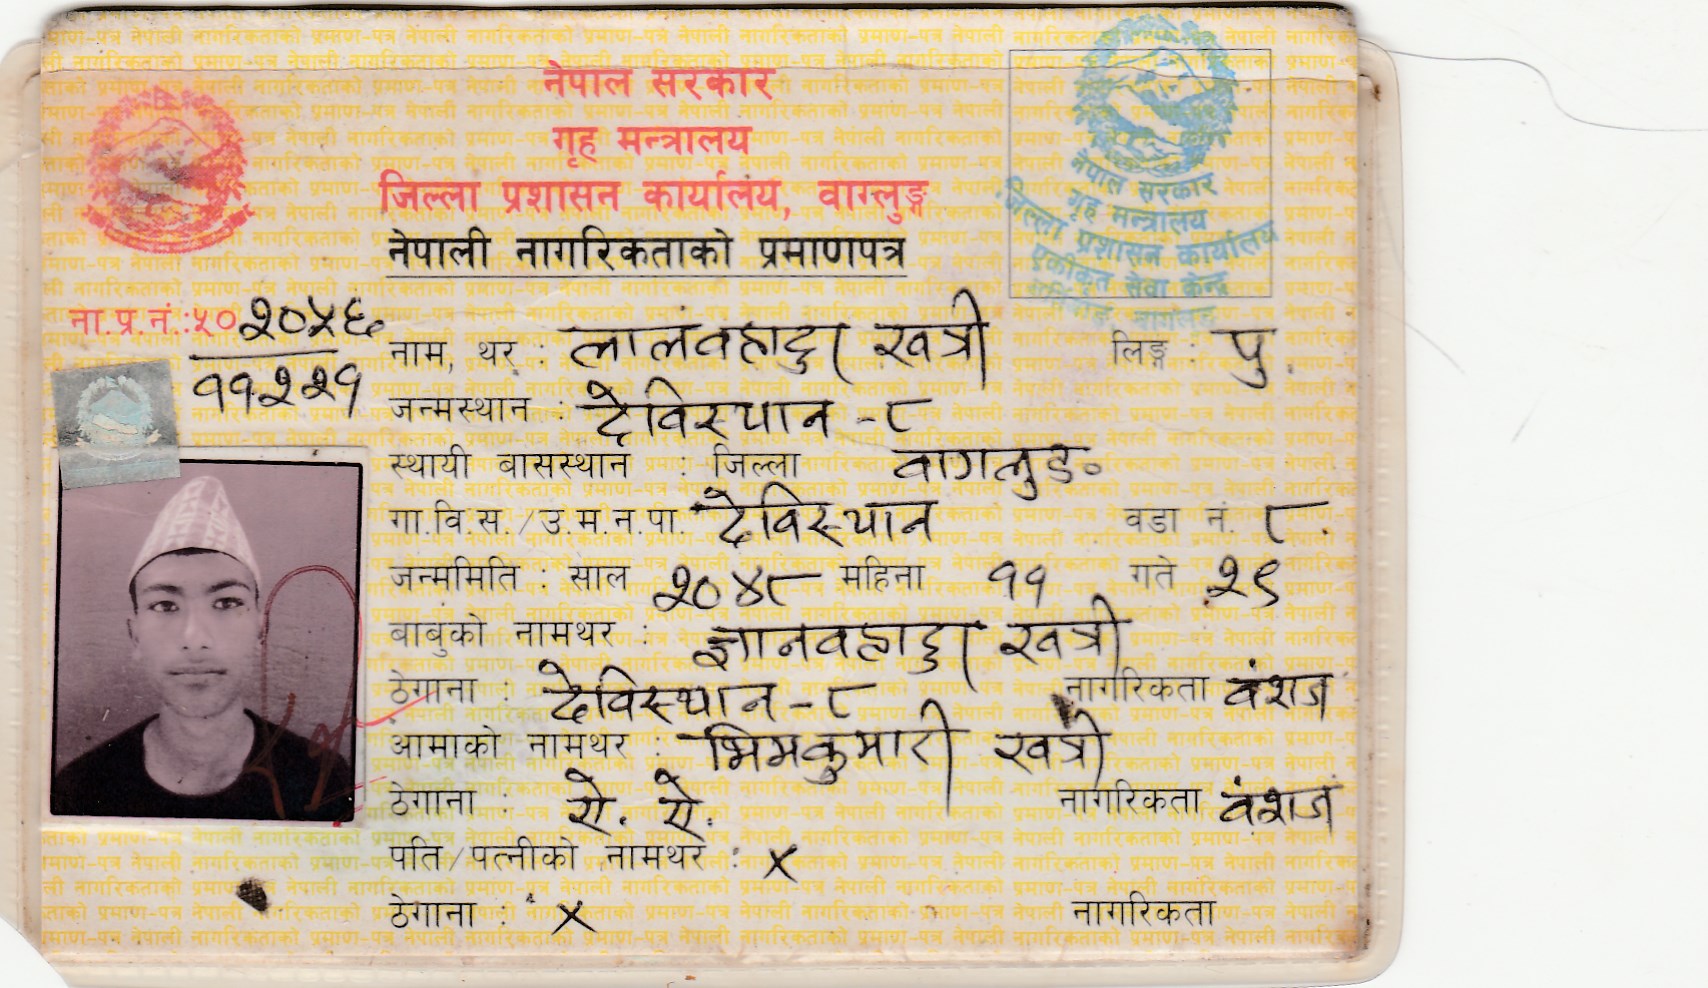 नेपाल सरकार
गृह मन्त्रालय
जिल्ला प्रशासन कार्यालय, वाग्लुङ्ग
नेपाली नागरिकताको प्रमाणपत्र
नेपाल सरकार
गृह मन्त्रालय
जिल्ला प्रशासन कार्यालय
एकीकृत सेवा केन्द्र
ना.प्र.नं.:५०२०५६
११२२१
नाम, थर : लालवहादुर खत्री लिङ्ग : पु.
जन्मस्थान : देविस्थान -८
स्थायी बासस्थान : जिल्ला वागलुङ
गा.वि.स./उ.म.न.पा. देविस्थान वडा नं. ८.
जन्ममिति : साल २०४८ महिना ११ गते २९
बाबुको नामथर : ज्ञानवहादुर खत्री
ठेगाना : देविस्थान -८ नागरिकता वंशज
आमाको नामथर : भिमकुमारी खत्री
ठेगाना : ऐ. ऐ. नागरिकता वंशज
पति/पत्नीको नामथर : X
ठेगाना : X नागरिकता